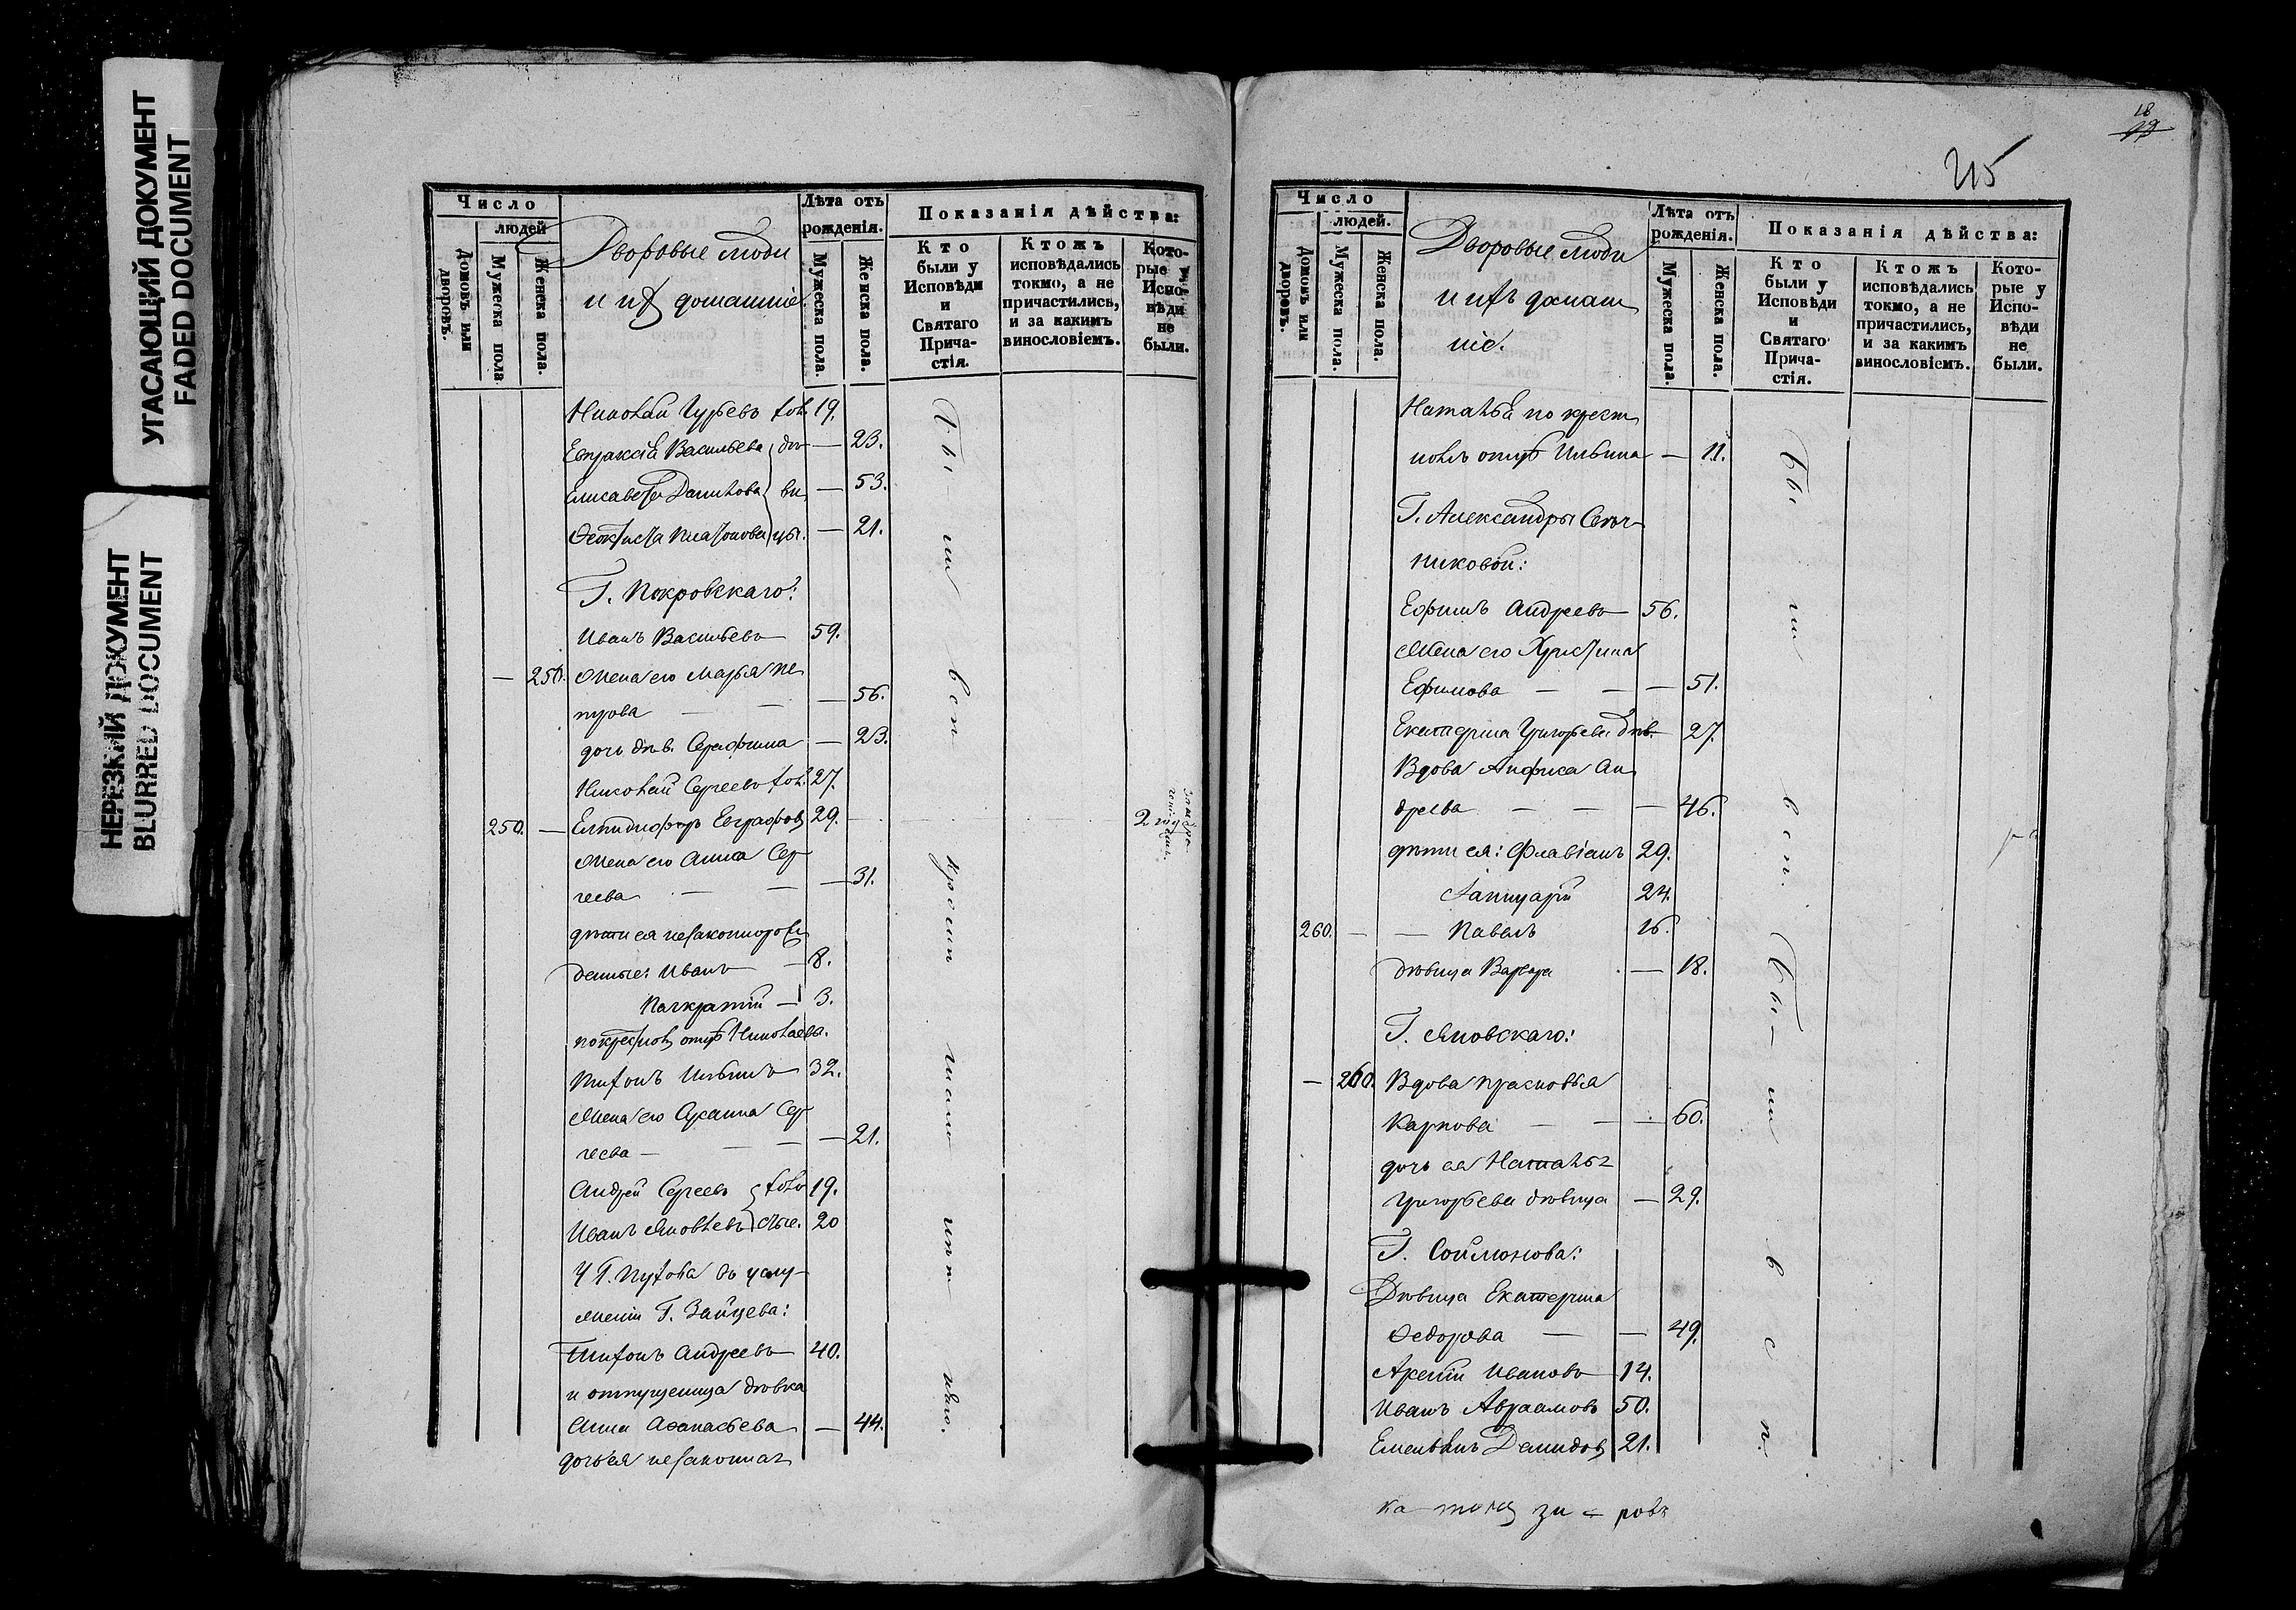 УГАСАЮЩИЙ ДОКУМЕНТ
FADED DOCUMENT
НЕРЕЗКИЙ ДОКУМЕНТ
BLURRED DOCUMENT
Число
людей
Домовъ или дворовъ.
Мужеска пола
Женска пола.
Дворовые люди
и ихъ домашніе.
Лѣта отъ
рожденія.
Мужеска пола.
Женска пола.
Показанія дѣйства:
Кто
были у
Исповѣди
и
Святаго
Прича-
стія.
Ктожъ
исповѣдались
токмо, а не
причастились,
и за какимъ
винословіемъ.
Кото-
рые у
Испо-
вѣди
не
были.
Николай Гурьевъ хол. 19.
Евпраксія Васильева дѣ — 23.
Елисавета Данилова ви — 53.
Ѳеоктиста Платонова цы. — 21.
Г. Покровскаго:
Иванъ Васильевъ 59.
— 250. Жена его Марья Пе
трова — — — 56.
дочь дѣв. Серафима — 23.
Николай Сергеевъ хол. 27.
250. — Елпидифоръ Евграфовъ 29. 2 год
Жена его Анна Сер
геева — — — 31.
дѣти ея незаконнорож
денные: Иванъ — 8.
Панкратій — 3.
по крестном отцѣ Николаева.
Тихонъ Ильинъ 32.
Жена его Сусанна Сер
геева — — — 21.
Андрей Сергеевъ холо 19.
Иванъ Яковлевъ стые. 20
У Г. Пухова въ услу-
женіи Г. Зайцева:
Тихонъ Андреевъ 40.
и отпущеница дѣвка
Анна Аѳанасьева — 44.
дочь ея незаконная
Бы ли вси
кромѣ
18
19
215
Число
людей.
Домовъ или дворовъ.
Мужеска пола.
Женска пола.
Дворовые люди
и ихъ домаш
ніе.
Лѣта отъ
рожденія.
Мужеска пола.
Женска пола.
Показанія дѣйства:
Кто
были у
Исповѣди
и
Святаго
Прича-
стія.
Ктожъ
исповѣдались
токмо, а не
причастились,
и за какимъ
винословіемъ.
Кото-
рые у
Испо-
вѣди
не
были.
Наталья по крест
номъ отцѣ Ильина — 11.
Г. Александры Сѣч-
никовой:
Ефимъ Андреевъ 56.
Жена его Христина
Ефимова — — — 51.
Екатерина Григорьева дѣв. 27.
Вдова Анфиса Ан
дреева — — — 46.
дѣти ея: Флавіанъ 29.
Іаннуарій 24.
260. — — Павелъ 16.
дѣвица Варвара — 18.
Г. Яновскаго:
— 260. Вдова Прасковья
Карпова — — — 60.
дочь ея Наталья
Григорьева дѣвица — 29.
Г. Соймонова:
Дѣвица Екатерина
Ѳедорова — — 49.
Арсеній Ивановъ 14.
Иванъ Авраамовъ 50.
Емельянъ Демидовъ 21.
Бы ли вси.
Бы ли вси.